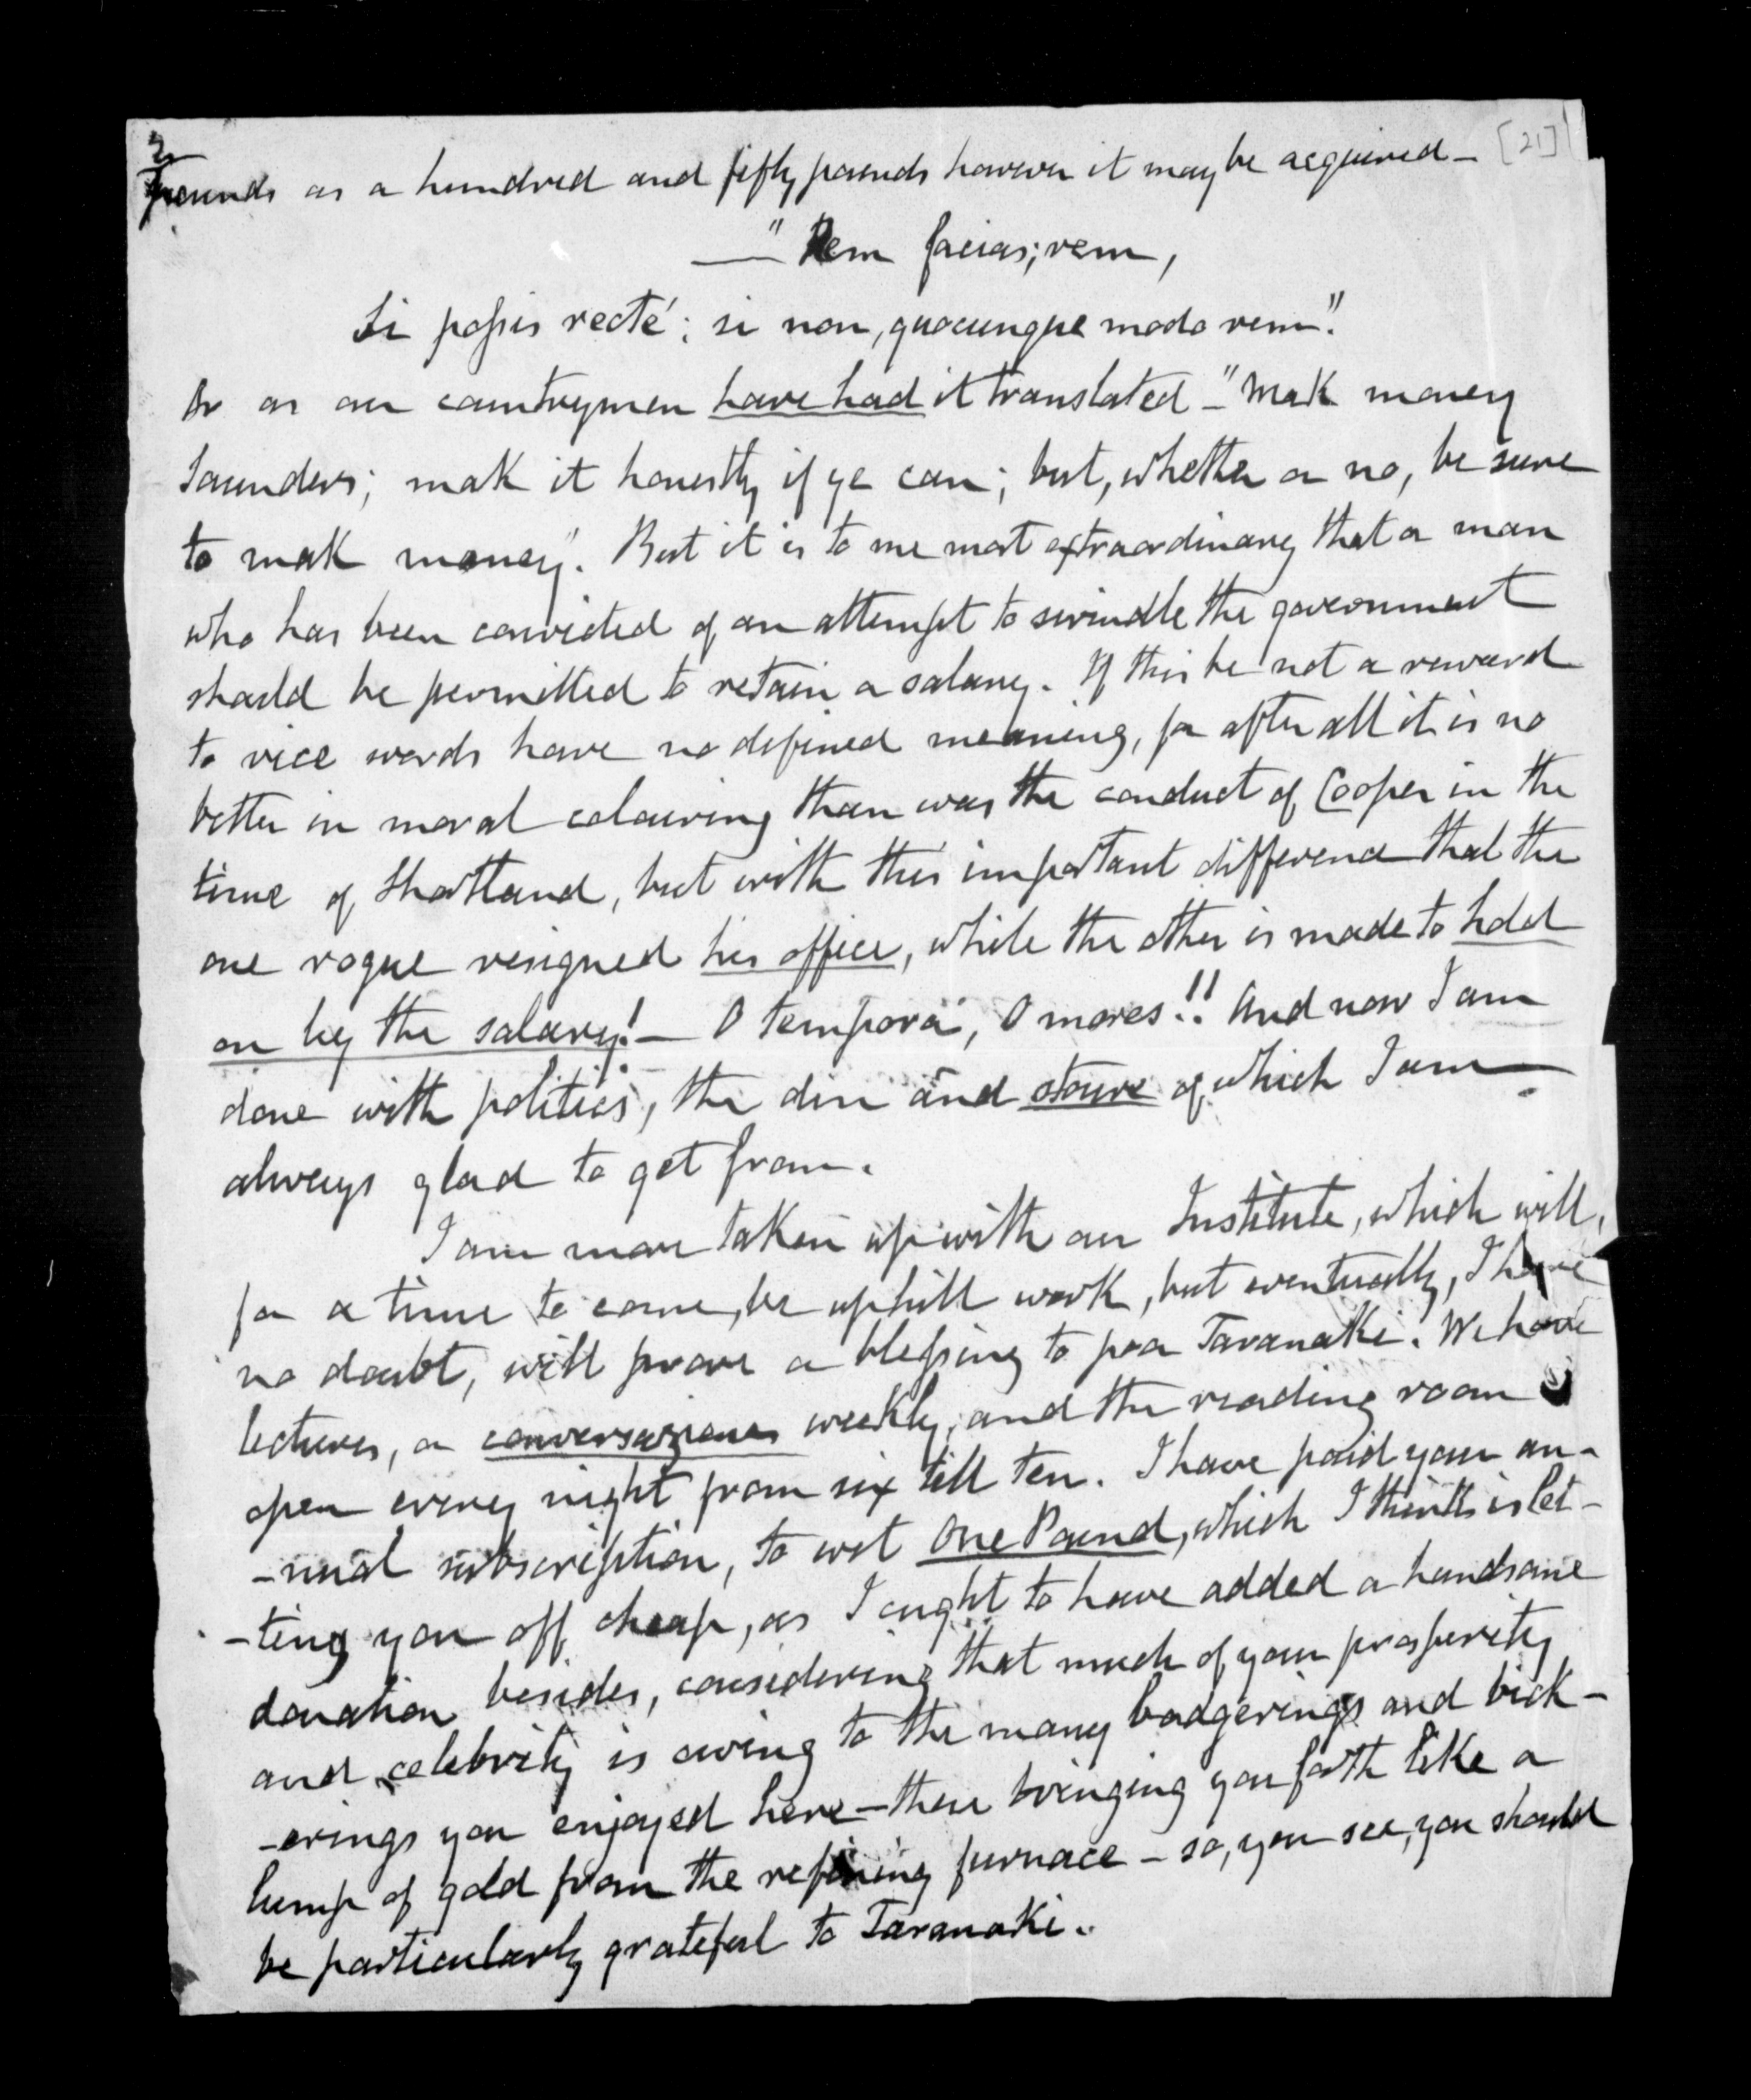 2
[21]
pounds as a hundred and fifty pounds however it may be acquired —
— "Rem facias; rem,
Si possis recté; si non, quocunque modo rem".
Or as our countrymen have had it translated — "Mak money
Saunders; mak it honestly if ye can; but, whether or no, be sure
to mak money". But it is to me most extraordinary that a man
who has been convicted of an attempt to swindle the government
should be permitted to retain a salary. If this be not a reward
to vice words have no defined meaning, for after all it is no
better in moral colouring than was the conduct of Cooper in the
time of Shortland, but with this important difference that the
one rogue resigned his office, while the other is made to hold
on by the salary! — O tempora, O mores!! And now I am
done with politics, the din and stoure of which I am
always glad to get from.
I am more taken up with our Institute, which will,
for a time to come, be uphill work, but eventually, I have
no doubt, will prove a blessing to poor Taranaki. We have
lectures, a conversazione weekly, and the reading room
open every night from six till ten. I have paid your an-
-nual subscription, to wit One Pound, which I think is let-
-ting you off cheap, as I ought to have added a handsome
donation besides, considering that much of your prosperity
and celebrity is owing to the many badgerings and bick-
-erings you enjoyed here — these bringing you forth like a
lump of gold from the refining furnace — so, you see, you should
be particularly grateful to Taranaki.